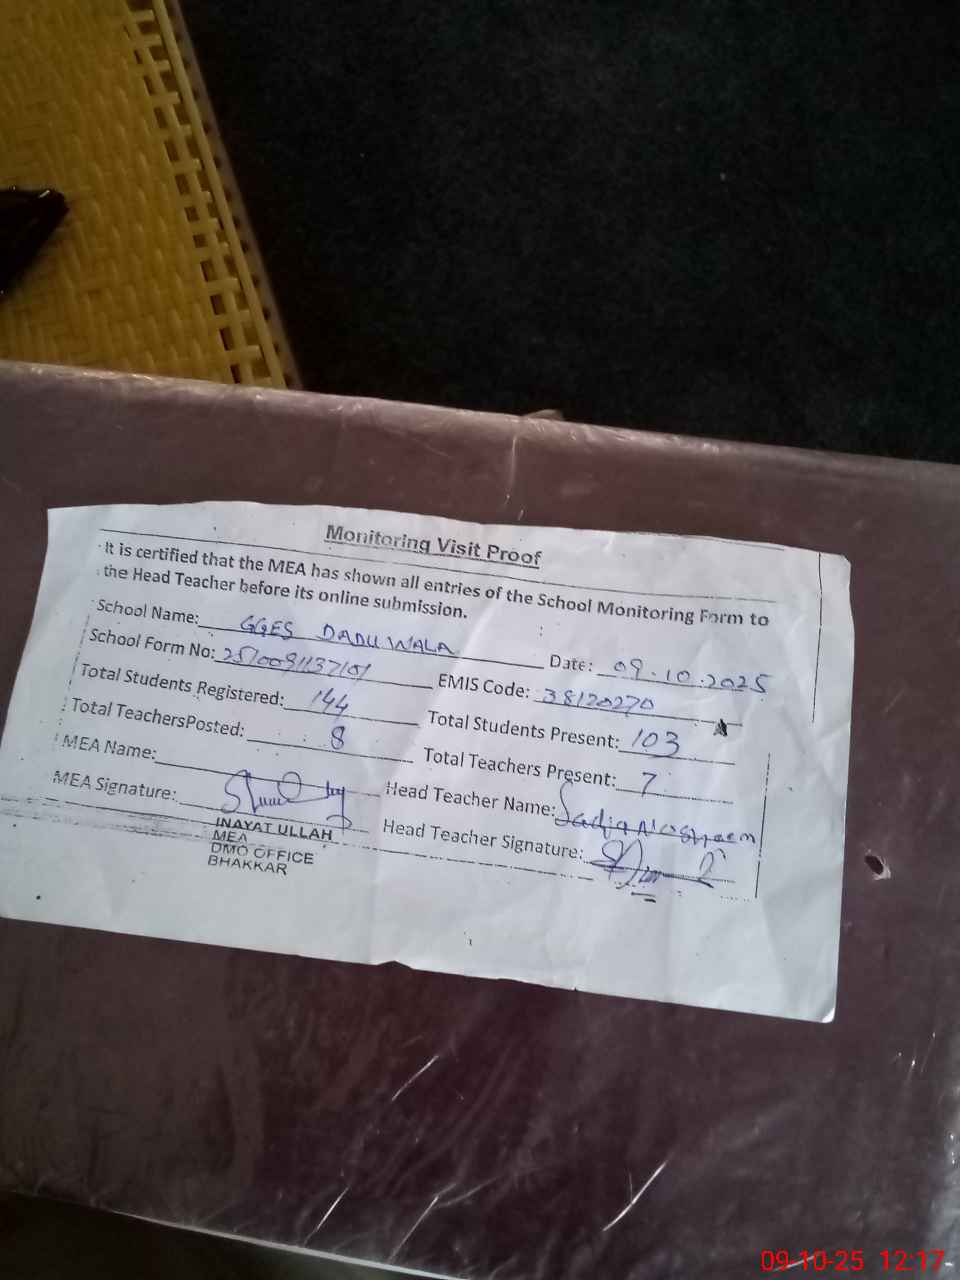 Monitoring Visit Proof
It is certified that the MEA has shown all entries of the School Monitoring Form to
the Head Teacher before its online submission.
School Name: GGES DADUWALA Date: 09.10.2025
School Form No: EMIS Code: 38120270
Total Students Registered: 144 Total Students Present: 103
Total TeachersPosted: 8 Total Teachers Present: 7
MEA Name: Head Teacher Name: Sadia
MEA Signature: Head Teacher Signature:
INAYAT ULLAH
MEA
DMO OFFICE
BHAKKAR
09-10-25 12:17